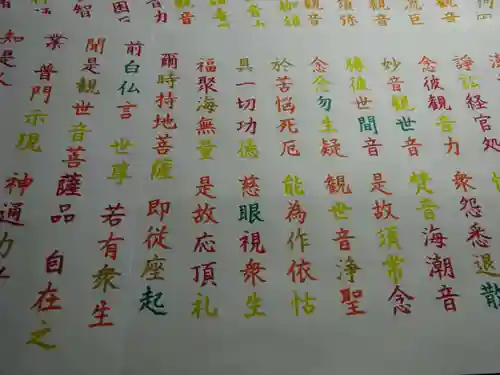 観音
流巨
須弥
観音
観音
音力
諍訟経官処
念彼観音力 衆怨悉退散
妙音観世音 梵音海潮音
勝彼世間音 是故須常念
念念勿生疑 観世音浄聖
於苦悩死厄 能為作依怙
具一切功徳 慈眼視衆生
福聚海無量 是故応頂礼
爾時持地菩薩 即従座起
前白仏言 世尊 若有衆生
聞是観世音菩薩品 自在之
業 普門示現 神通力
知是人